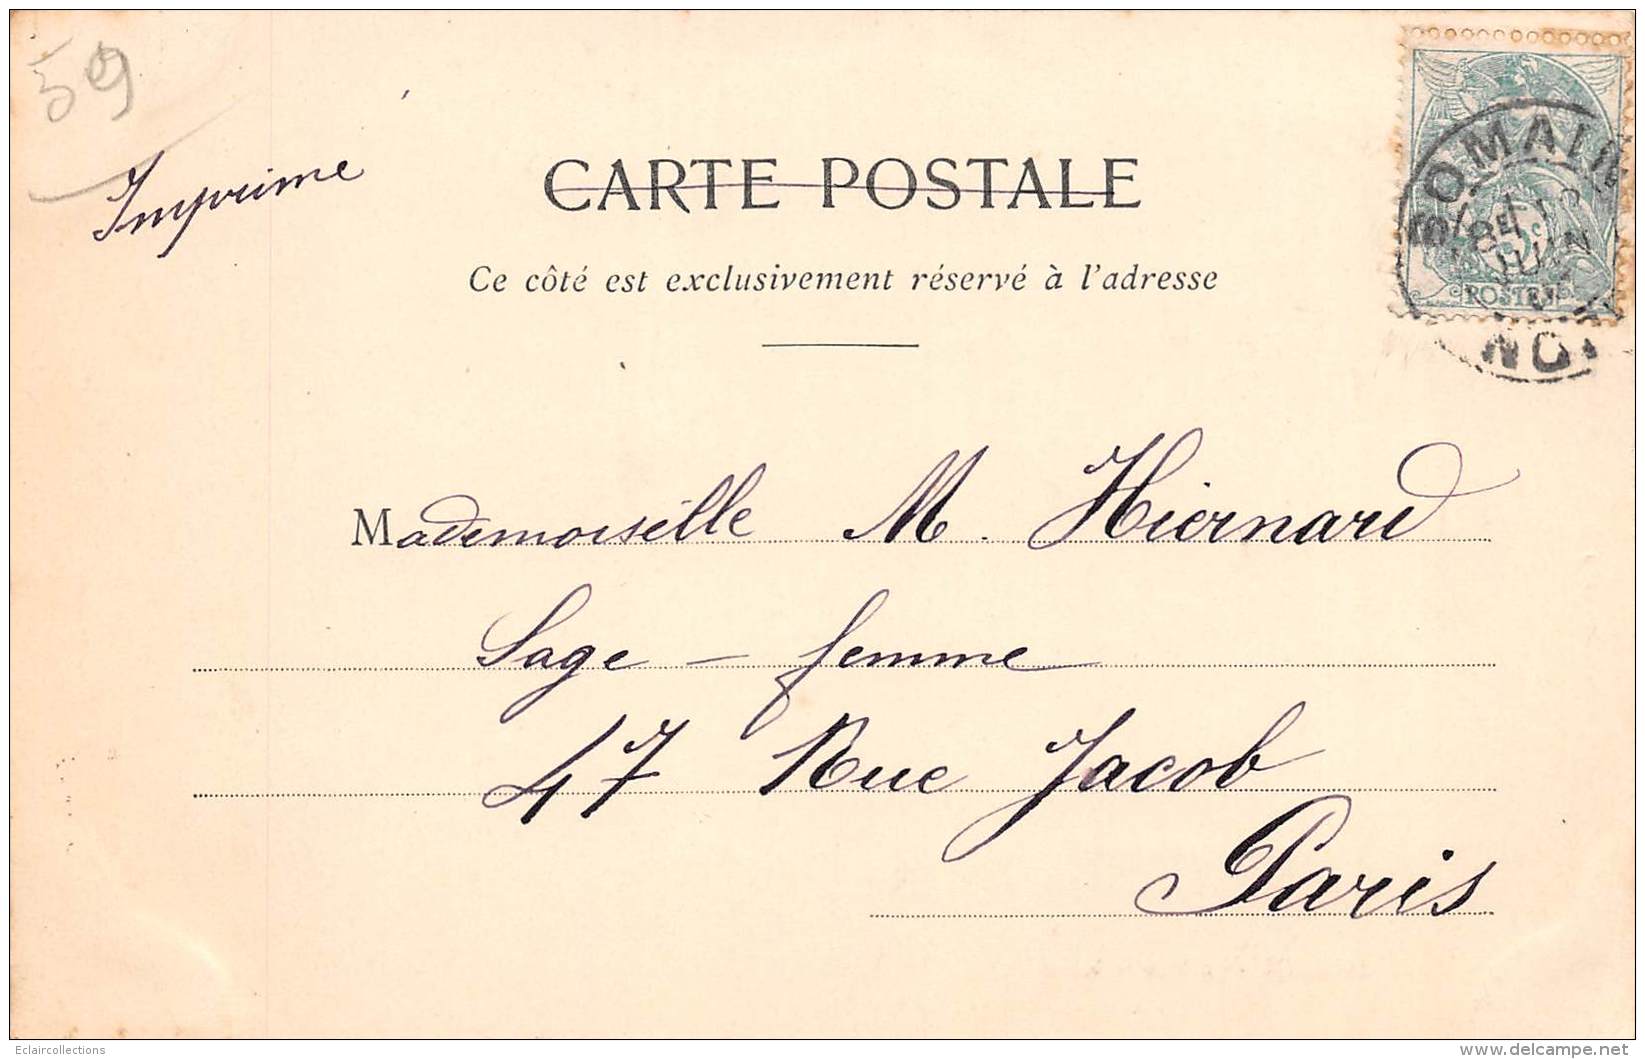 59
Imprimé
CARTE POSTALE
Ce côté est exclusivement réservé à l'adresse
SOMAIN
8E
JUIN
POSTES
NORD
Mademoiselle M. Hiernard
Sage-femme
47 Rue Jacob
Paris
Eclaircollections
delcampe.net